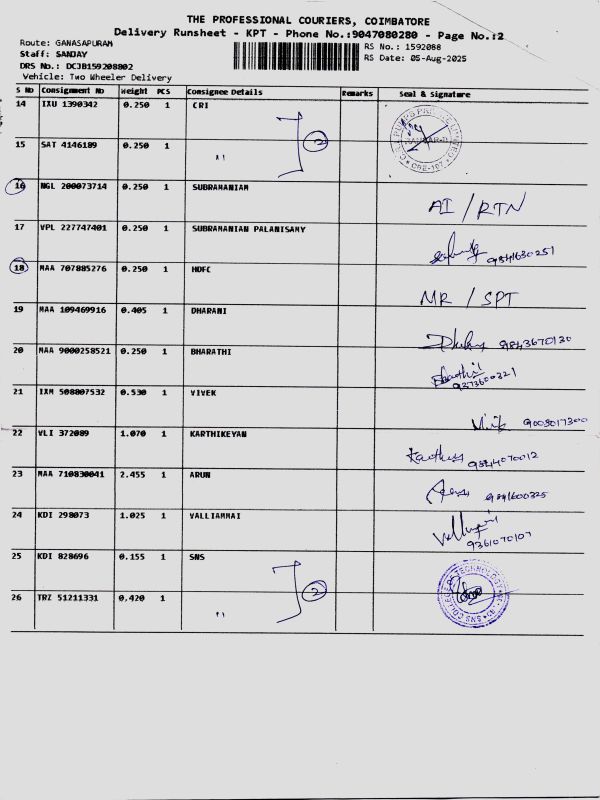 THE PROFESSIONAL COURIERS, COIMBATORE
Delivery Runsheet - KPT - Phone No.:9047080280 - Page No.:2
Route: GANASAPURAM
Staff: SANJAY
DRS No.: DCJB159208802
Vehicle: Two Wheeler Delivery
RS No.: 1592088
RS Date: 05-Aug-2025
S No Consignment No Weight PCS Consignee Details Remarks Seal & Signature
14 IXU 1390342 0.250 1 CRI
15 SAT 4146189 0.250 1 " 2
16 NGL 200073714 0.250 1 SUBRAMANIAM AI / RTN
17 VPL 227747401 0.250 1 SUBRAMANIAN PALANISAMY 9841630251
18 MAA 707885276 0.250 1 HDFC MR / SPT
19 MAA 109469916 0.405 1 DHARANI 9843670130
20 MAA 9000258521 0.250 1 BHARATHI Bharathi 9373600321
21 IXM 508807532 0.530 1 VIVEK 9003017300
22 VLI 372089 1.070 1 KARTHIKEYAN 9844070012
23 MAA 710830041 2.455 1 ARUN 9841600325
24 KDI 298073 1.025 1 VALLIAMMAI 9361070107
25 KDI 828696 0.155 1 SNS SNS COLLEGE OF TECHNOLOGY
26 TRZ 51211331 0.420 1 " 2